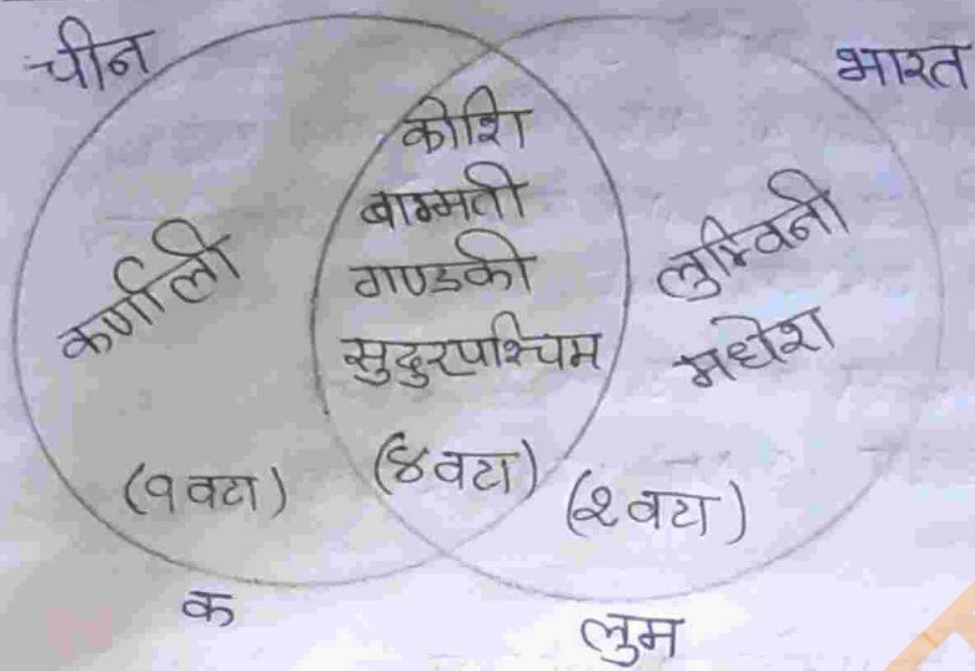 चीन
भारत
कोशि
बाग्मती
गण्डकी
सुदुरपश्चिम
कर्णाली
लुम्विनी
मधेश
(१वटा)
(४वटा)
(२वटा)
क
लुम